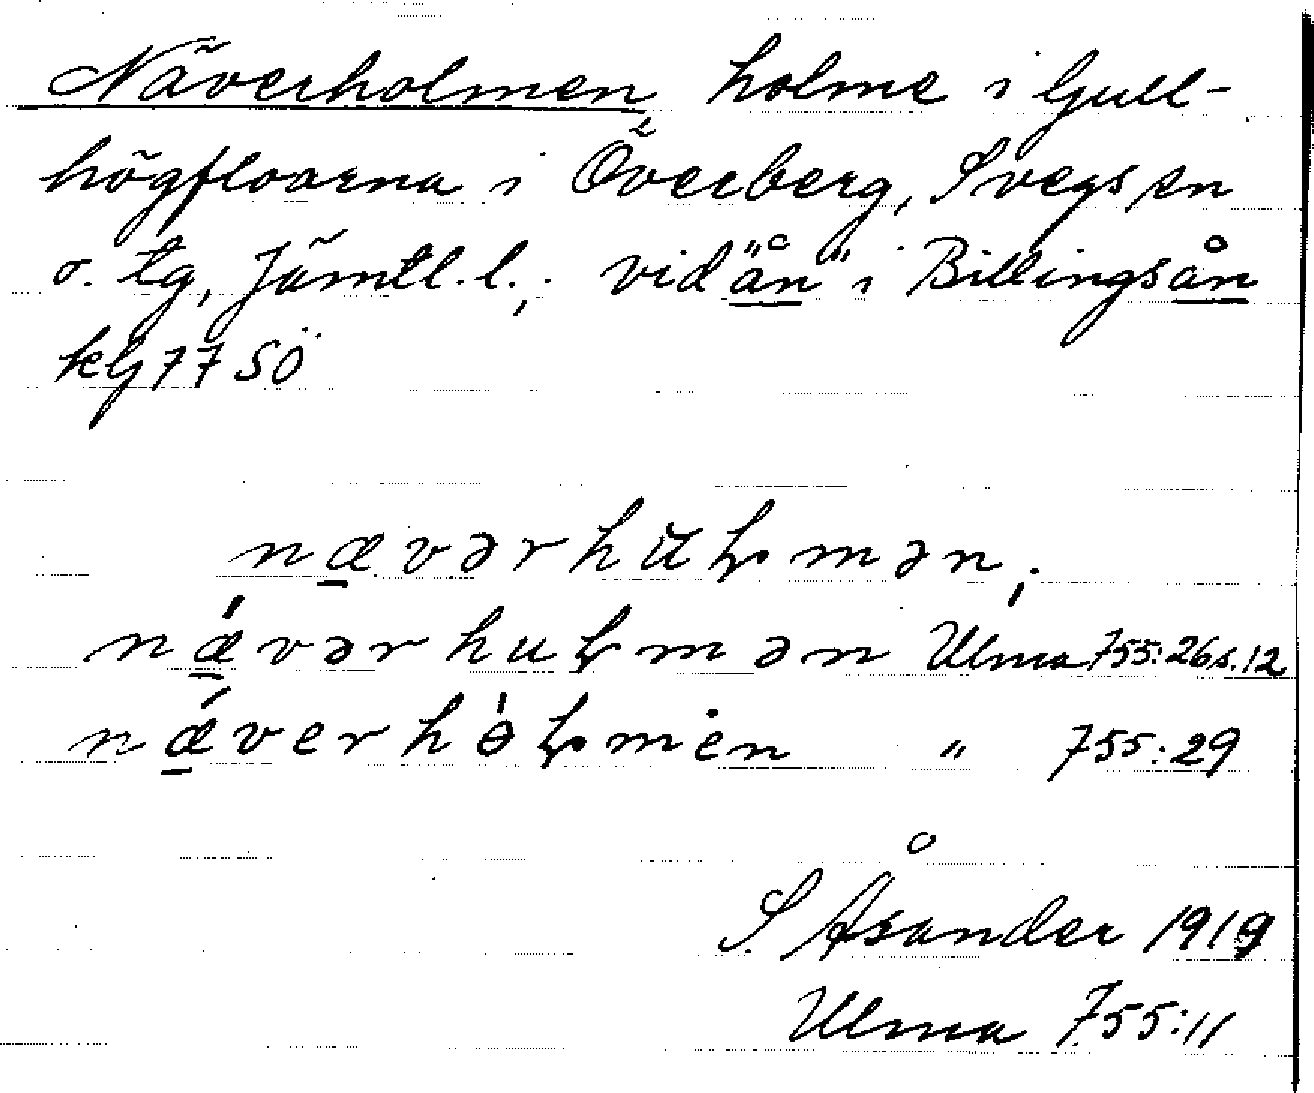 Näverholmen, holme i Gull-
högfloarna i Överberg, Svegs sn
o. tg, Jämtl. l.; vid "ån" i Billingsån
kbl 77 SÖ
nævərhuɫmən;
nǽvərhuɫmən Ulma 755:26 s. 12
nǽverhòɫmen " 755:29
S. Åsander 1919
Ulma 755:11